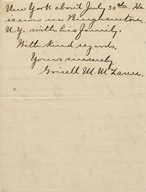 New York about July 30th. He
is now in Binghamton,
N.Y. with his family.
With kind regards,
Yours sincerely
Grisell M. McLaren